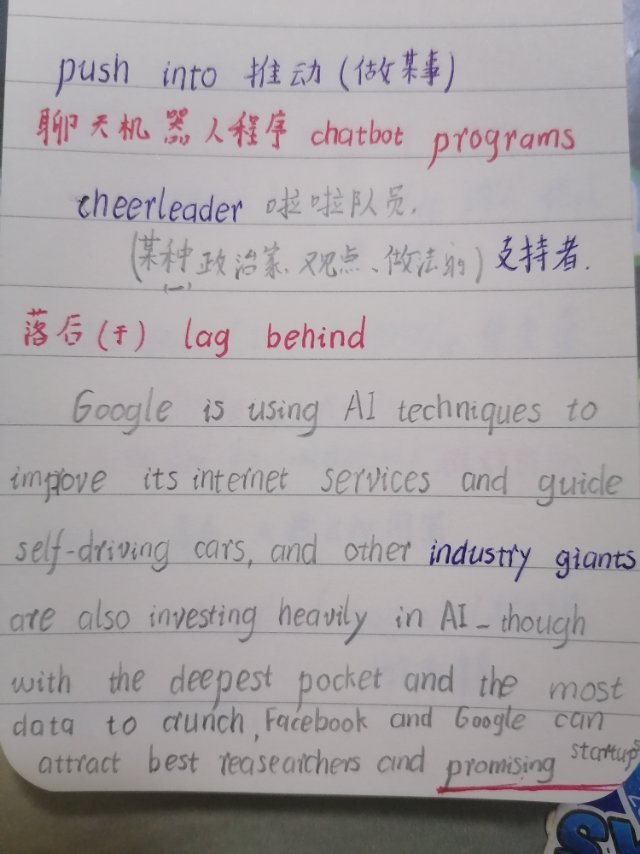 push into 推动(做某事)
聊天机器人程序 chatbot programs
cheerleader 啦啦队员.
(某种政治家、观点、做法的)支持者.
(一)
落后(于) lag behind
Google is using AI techniques to
improve its internet services and guide
self-driving cars, and other industry giants
are also investing heavily in AI - though
with the deepest pocket and the most
data to crunch, Facebook and Google can
attract best reasearchers and promising startups